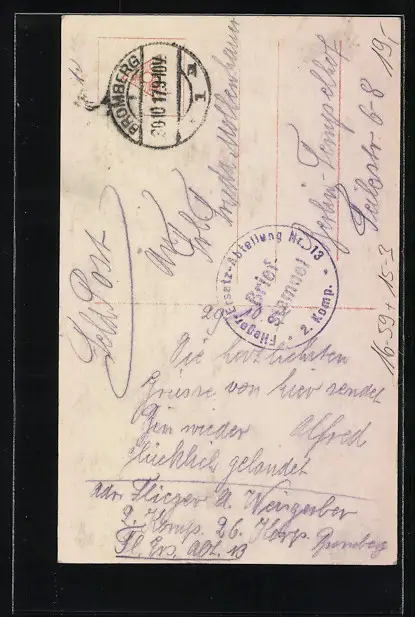 BROMBERG
30.10.17.9-10V.
Feld Post
An
Frl.
Frieda Mollenhauer
Berlin-Tempelhof
6-8
19,-
16-59 + 15-3
Flieger-Ersatz-Abteilung Nr. 13
Brief
Stempel
* 2. Komp. *
29. 10.
Die herzlichsten
Grüsse von hier sendet
Bin wieder Alfred
glücklich gelandet
Adr. Flieger A. Weingerber
2. Komp. 26. Korp. Bromberg
Fl. Ers. Abt. 13